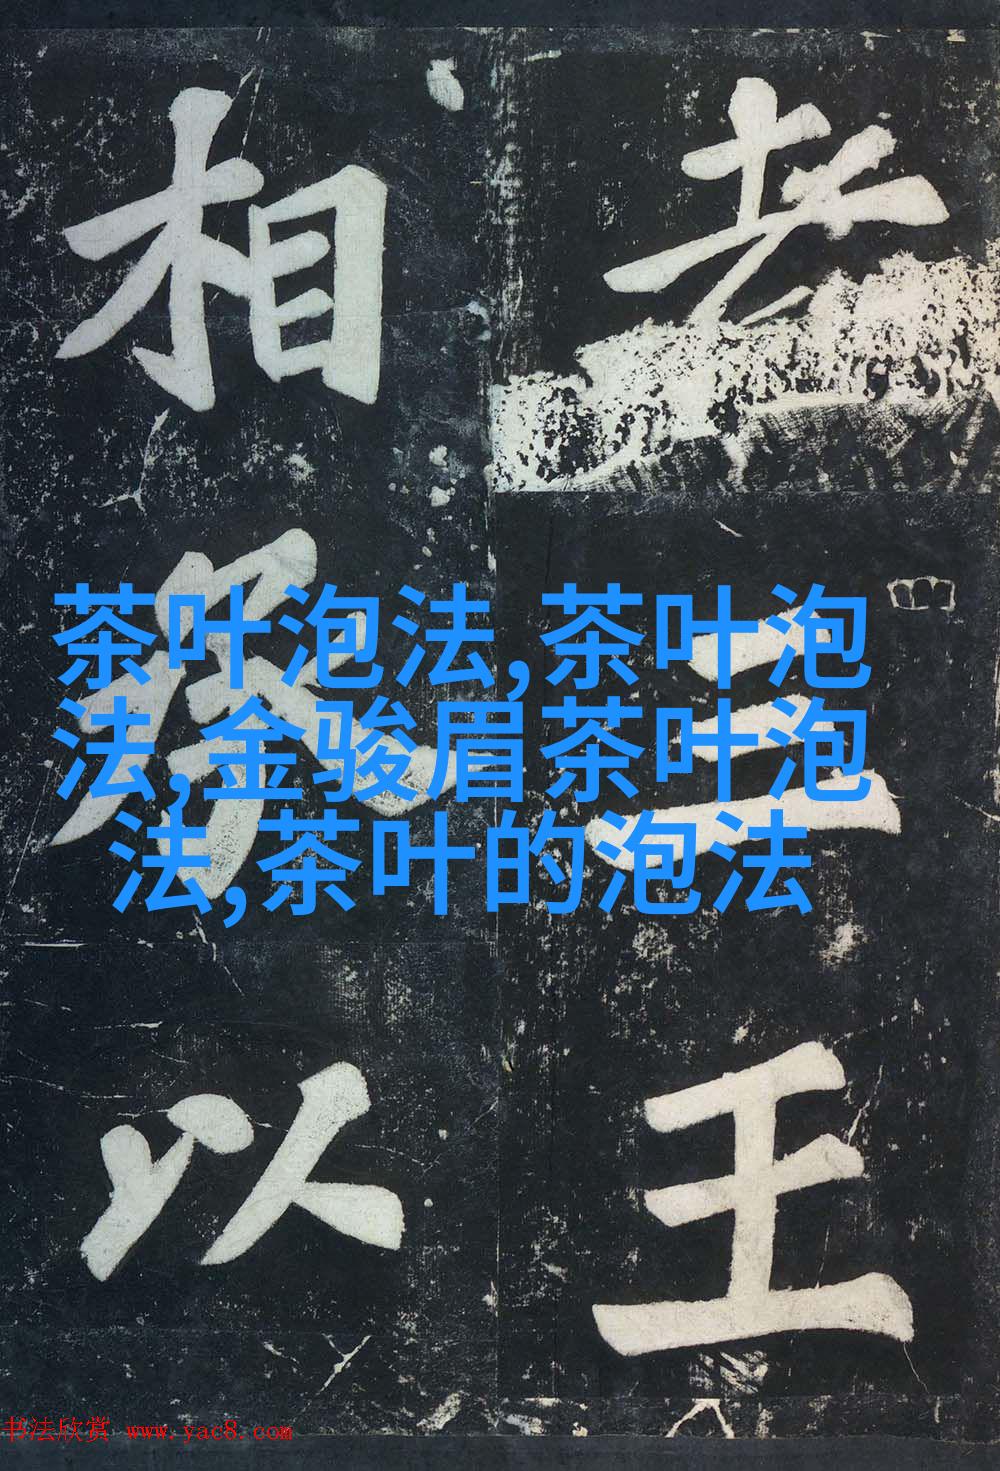 三王
相
以
茶叶泡法,茶叶泡
法,金骏眉茶叶泡
法,茶叶的泡法
书法欣赏 www.yac8.com